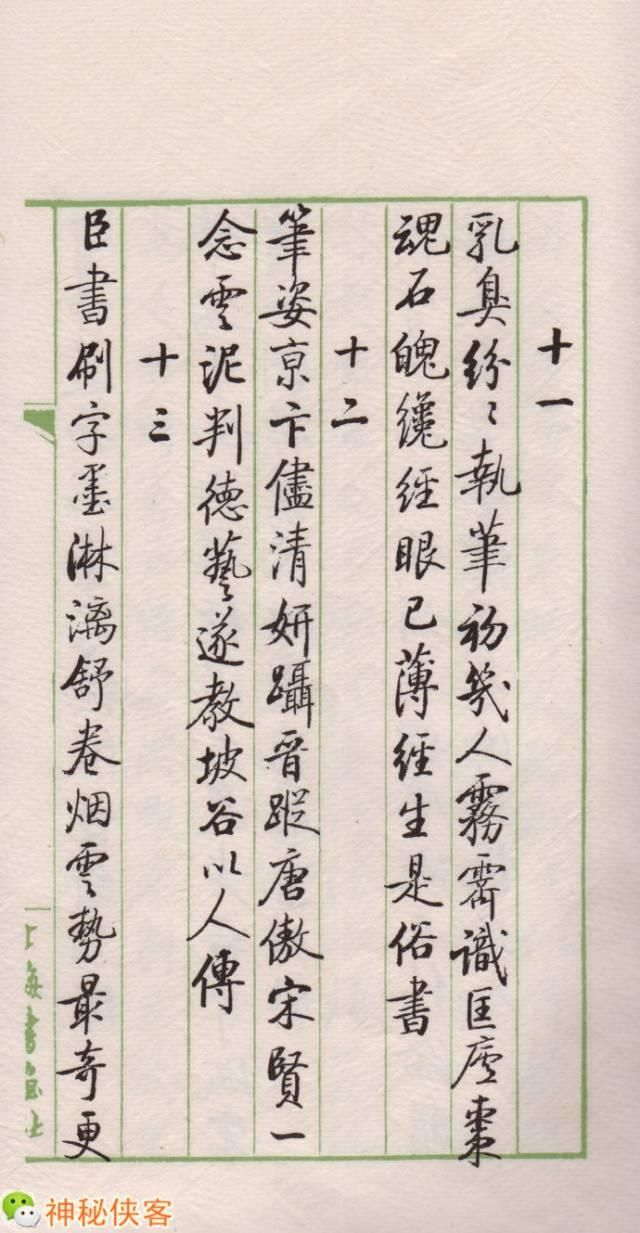 十一
乳臭紛〻執筆初幾人霧霽識匡廬棗
魂石魄纔經眼已薄經生是俗書
十二
筆姿京卞儘清妍躡晉蹤唐傲宋賢一
念雲泥判德藝遂教坡谷以人傳
十三
臣書刷字墨淋漓舒卷烟雲勢最奇更
上海書畫社
神秘侠客